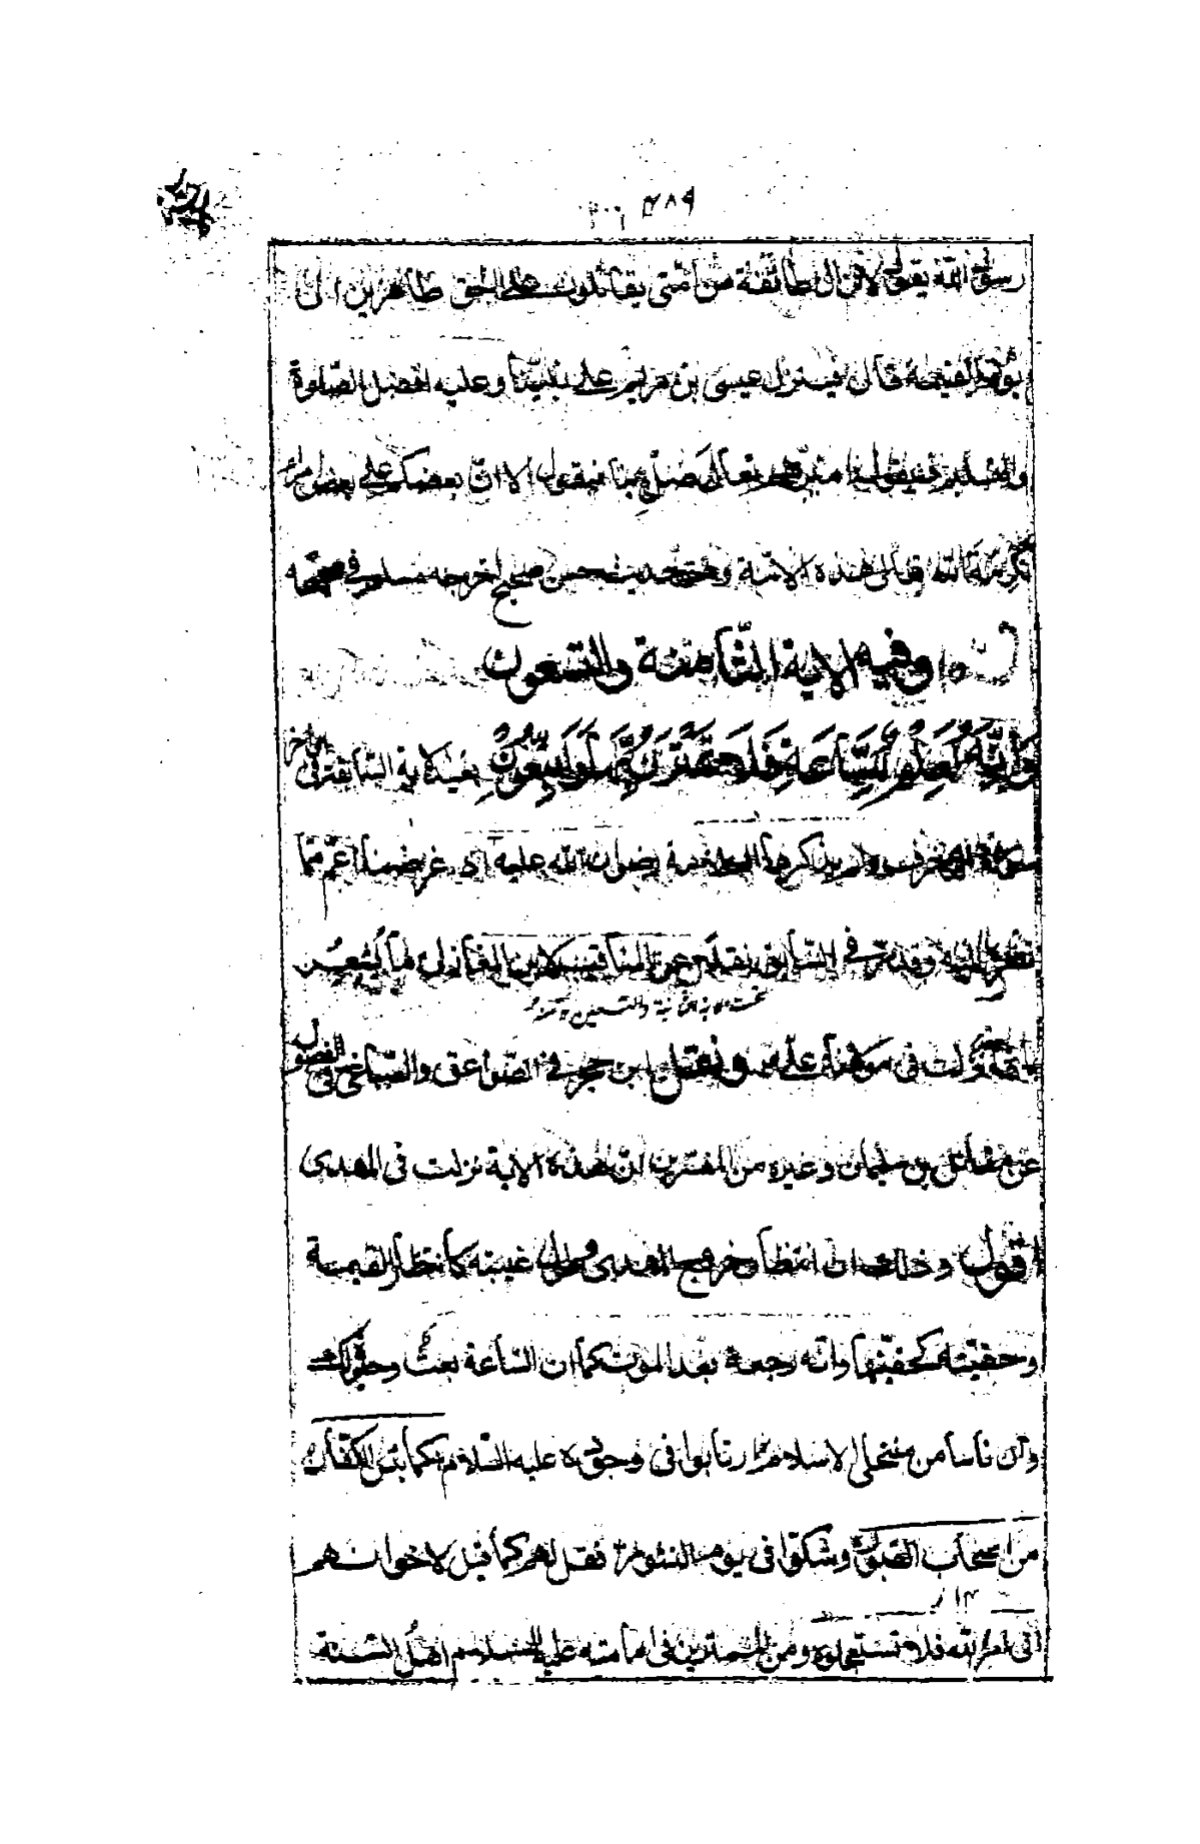 ٢٨٩
رسول الله يقول لا تزال طائفة من امّتى يقاتلون على الحق ظاهرين الى
يوم القيمة قال فينزل عيسى بن مريم على نبيّنا وعليه افضل الصّلوة
والتسليم فيقول اميرهم تعال صلّ بنا فيقول الا انّ بعضكم على بعض امراء
تكرمة الله تعالى هذه الامّة حديث حسن صحيح اخرجه مسلم فى صحيحه
وفيه الاية الثّامنة والتسعون
وَاِنَّهُ لَعِلْمٌ لِلسَّاعَةِ فَلَا تَمْتَرُنَّ بِهَا وَاتَّبِعُونِ
سورة الزخرف ولم يذكرها العلامة رضوان الله عليه اذ غرضنا اعمّ ممّا
نظر اليه وقد مرّ فى السّابق نقلا عن المناقب لابن المغازلى ما يُشعِر
تحت الاية الثانية والتسعين
نزلت فى على ونقل ابن حجر فى الصّواعق والصّباغ فى الفصول
عن مقاتل بن سليمان وغيره من المفسّرين انّ هذه الاية نزلت فى المهدى
اقول وذلك ان انتظار خروج المهدى وطول غيبته كانتظار القيمة
وحقيّته كحقيّتها وانّه رجعة بعد الموت كما ان السّاعة بعث
وان ناسا من منتحلى الاسلام ارتابوا فى وجوده عليه السّلام كما يئس الكفّار
من اصحاب القبور وشكّوا فى يوم النشور فقل لهم كما قيل لاخوانهم
اتى امر الله فلا تستعجلوه ومن الممترين فى امامته عليه السلام اهل السّنة